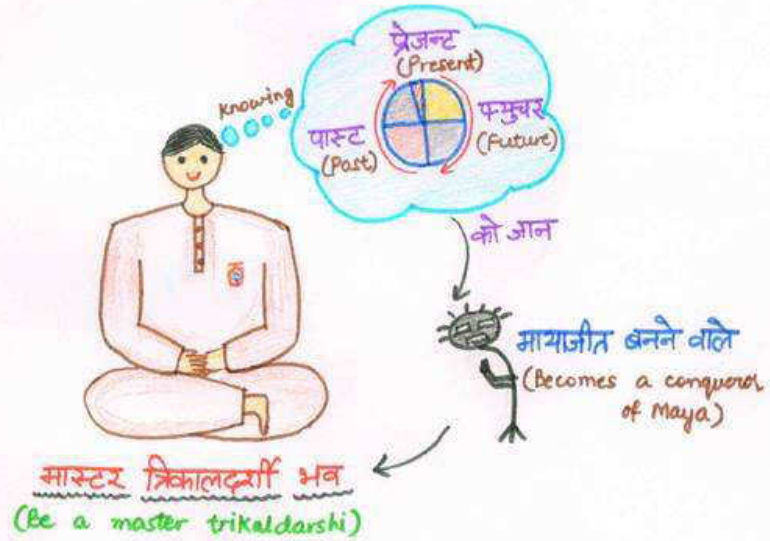 Knowing
प्रेजन्ट
(Present)
पास्ट
(Past)
फ्युचर
(Future)
को जान
मायाजीत बनने वाले
(Becomes a conqueror
of Maya)
मास्टर त्रिकालदर्शी भव
(Be a master trikaldarshi)